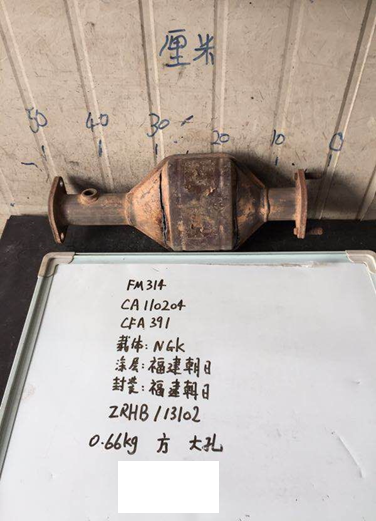 厘米
50 40 30 20 10 0
FM314
CA110204
CFA391
载体:NGK
涂层:福建朝日
封装:福建朝日
ZRHB/13102
0.66kg 方 大孔